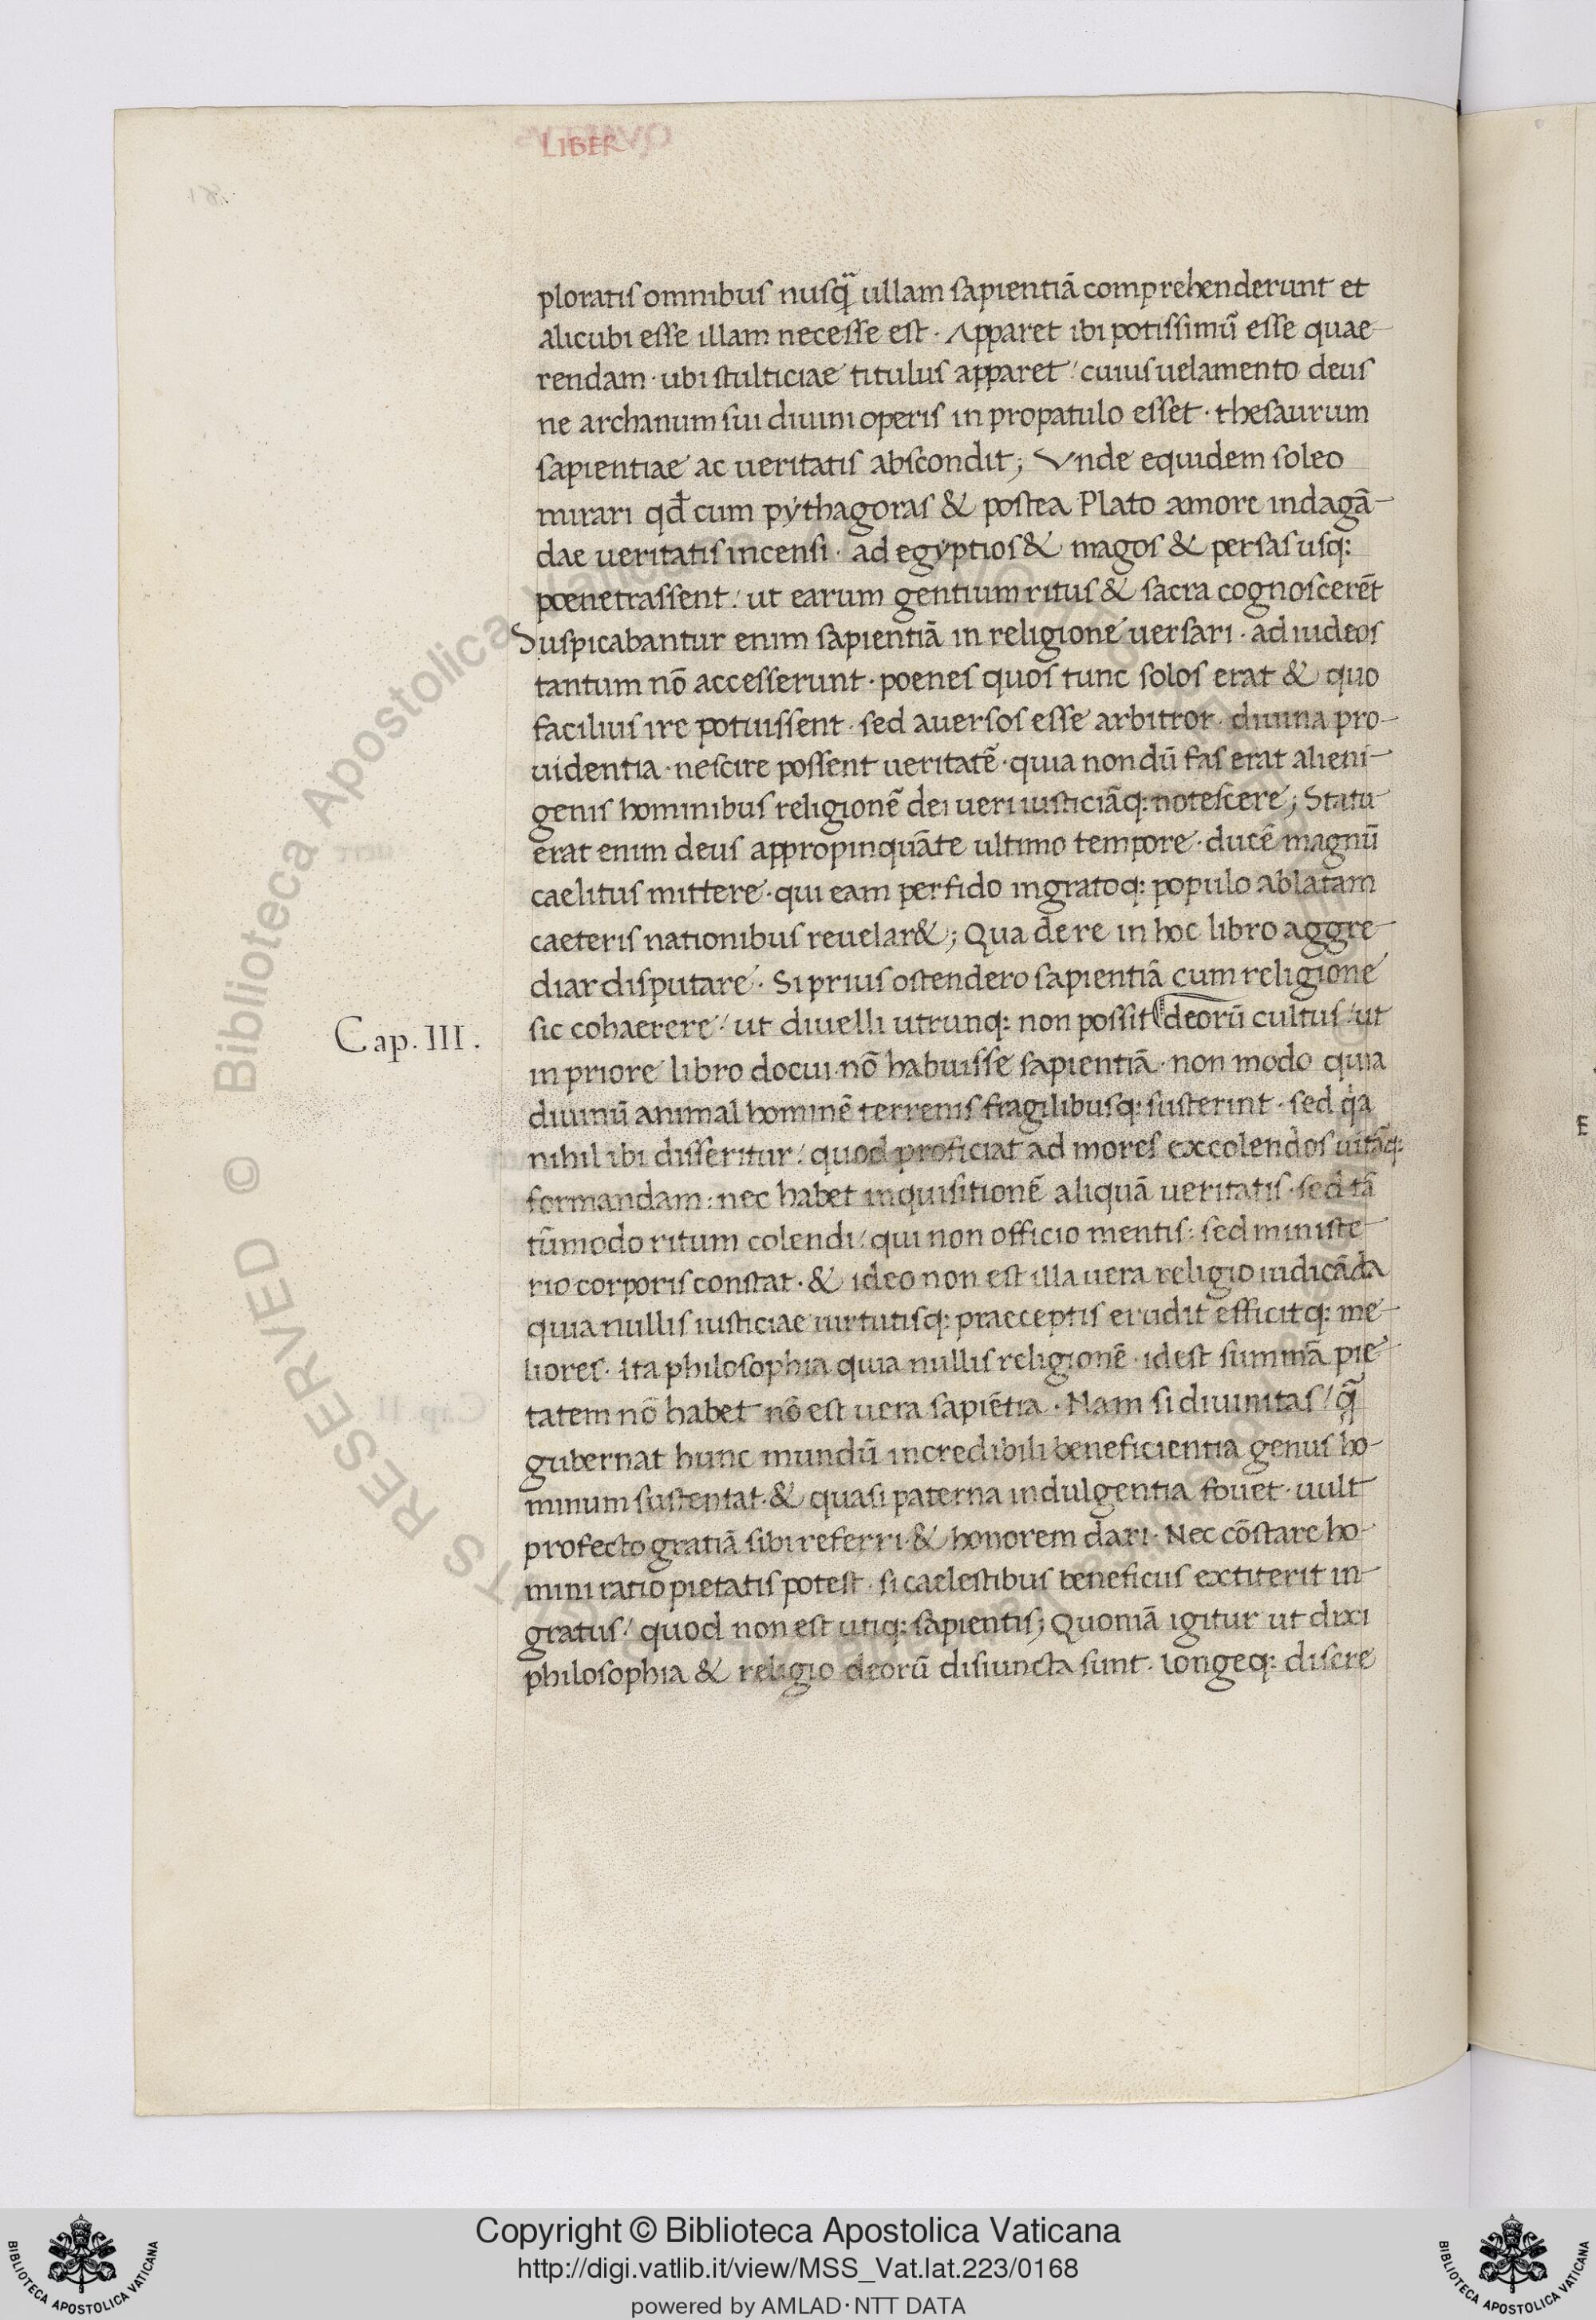 LIBER
ploratis omnibus nusq̃ ullam sapientiā comprehenderunt et
alicubi esse illam necesse est · Apparet ibi potissimū esse quae-
rendam · ubi stulticiae titulus apparet / cuius uelamento deus
ne archanum sui diuini operis in propatulo esset · thesaurum
sapientiae ac ueritatis abscondit; Vnde equidem soleo
mirari qđ cum pythagoras & postea Plato amore indagā-
dae ueritatis incensi · ad egyptios & magos & persas usq:
poenetrassent / ut earum gentium ritus & sacra cognoscerēt
Suspicabantur enim sapientiā in religione uersari · ad iudeos
tantum nō accesserunt · poenes quos tunc solos erat & quo
facilius ire potuissent · sed auersos esse arbitror · diuina pro-
uidentia · nescire possent ueritatē · quia non dū fas erat alieni-
genis hominibus religionē dei ueri iusticiāq: notescere; Statu
erat enim deus appropinquāte ultimo tempore · ducē magnū
caelitus mittere · qui eam perfido ingratoq: populo ablatam
caeteris nationibus reuelar&; Qua de re in hoc libro aggre-
diar disputare · Si prius ostendero sapientiā cum religione
Cap. III.
sic cohaerere / ut diuelli utrunq: non possit deorū cultus / ut
in priore libro docui · nō habuisse sapientiā · non modo quia
diuinū animal hominē terrenis fragilibusq: susterint · sed qa
nihil ibi disseritur / quod proficiat ad mores excolendos uitāq:
formandam : nec habet inquisitionē aliquā ueritatis · sed tā
tūmodo ritum colendi / qui non officio mentis : sed ministe-
rio corporis constat · & ideo non est illa uera religio iudicāda
quia nullis iusticiae uirtutisq: praeceptis erudit efficitq: me-
liores · ita philosophia quia nullis religionē · idest summā pie-
tatem nō habet nō est uera sapiētia · Nam si diuinitas / q̃
gubernat hunc mundū incredibili beneficientia genus ho-
minum sustentat · & quasi paterna indulgentia fouet · uult
profecto gratiā sibi referri · & honorem dari · Nec cōstare ho-
mini ratio pietatis potest · si caelestibus beneficiis extiterit in-
gratus / quod non est utiq: sapientis; Quoniā igitur ut dixi
philosophia & religio deorū disiuncta sunt · longeq: discre
Copyright © Biblioteca Apostolica Vaticana
http://digi.vatlib.it/view/MSS_Vat.lat.223/0168
powered by AMLAD·NTT DATA
BIBLIOTECA APOSTOLICA VATICANA
BIBLIOTECA APOSTOLICA VATICANA